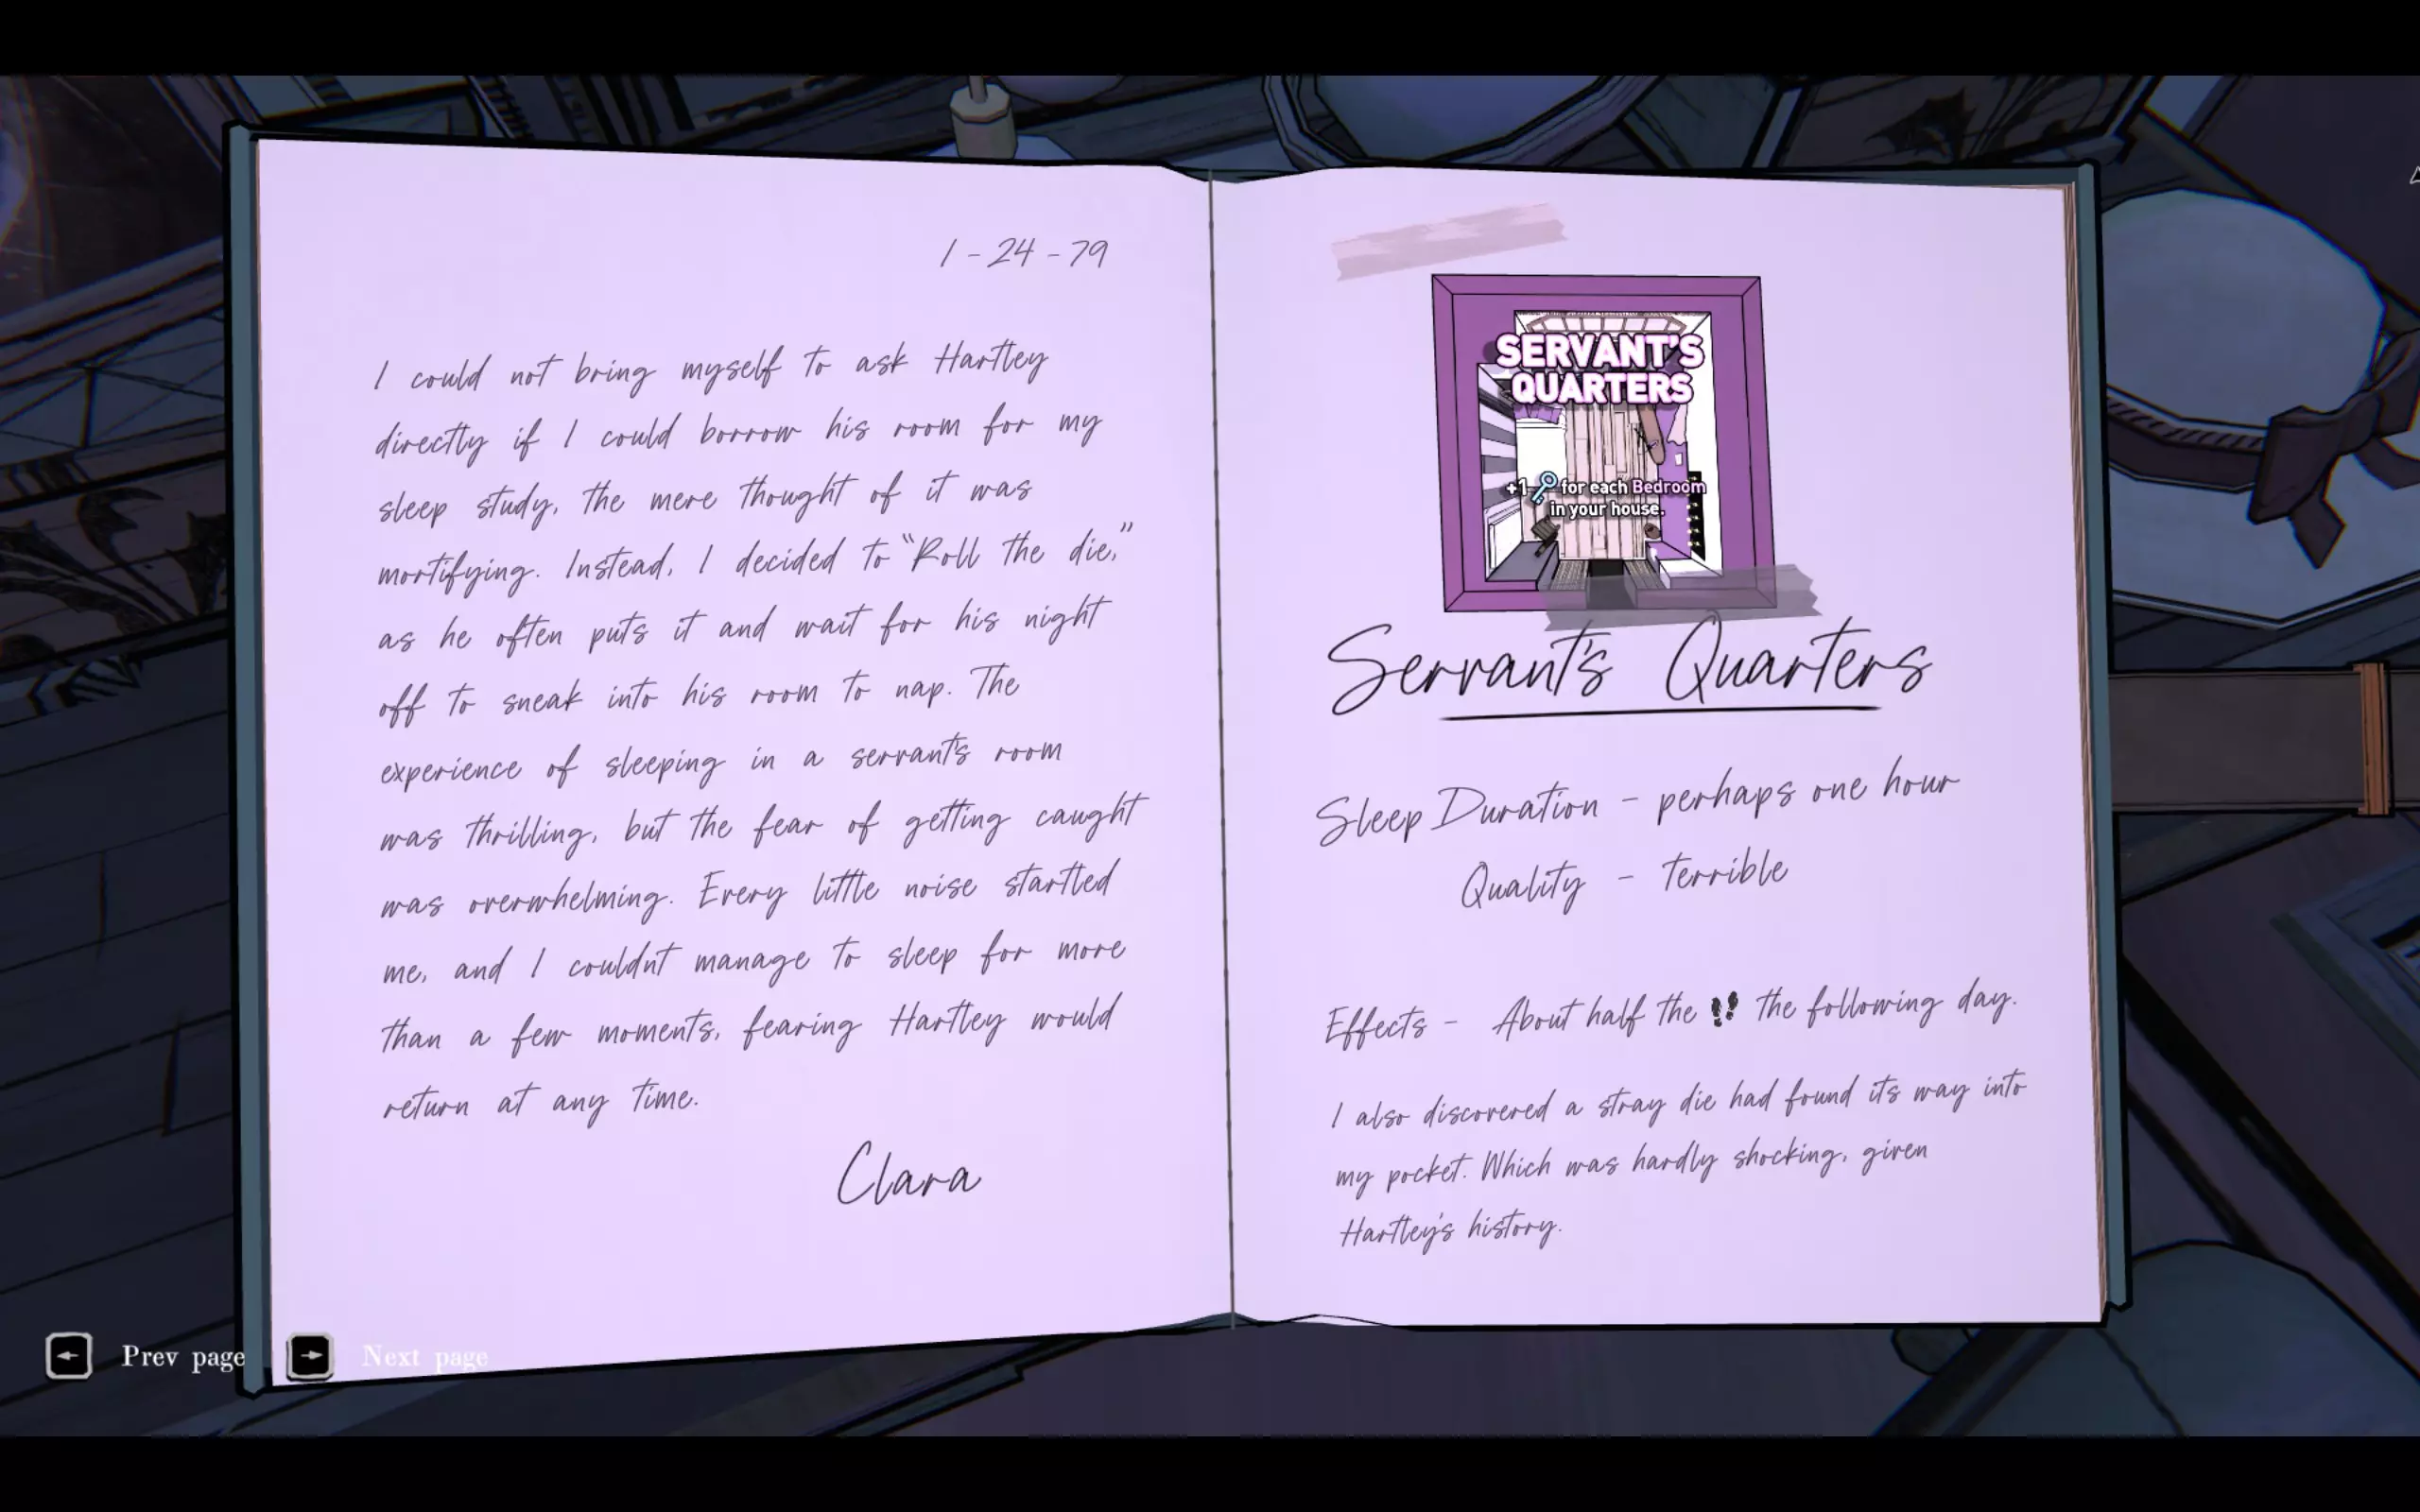 1-24-79
I could not bring myself to ask Hartley
directly if I could borrow his room for my
sleep study, the mere thought of it was
mortifying. Instead, I decided to "Roll the die,"
as he often puts it and wait for his night
off to sneak into his room to nap. The
experience of sleeping in a servant's room
was thrilling, but the fear of getting caught
was overwhelming. Every little noise startled
me, and I couldn't manage to sleep for more
than a few moments, fearing Hartley would
return at any time.
Clara
SERVANT'S
QUARTERS
+1 for each Bedroom
in your house.
Servant's Quarters
Sleep Duration - perhaps one hour
Quality - terrible
Effects - About half the the following day.
I also discovered a stray die had found its way into
my pocket. Which was hardly shocking, given
Hartley's history.
Prev page Next page